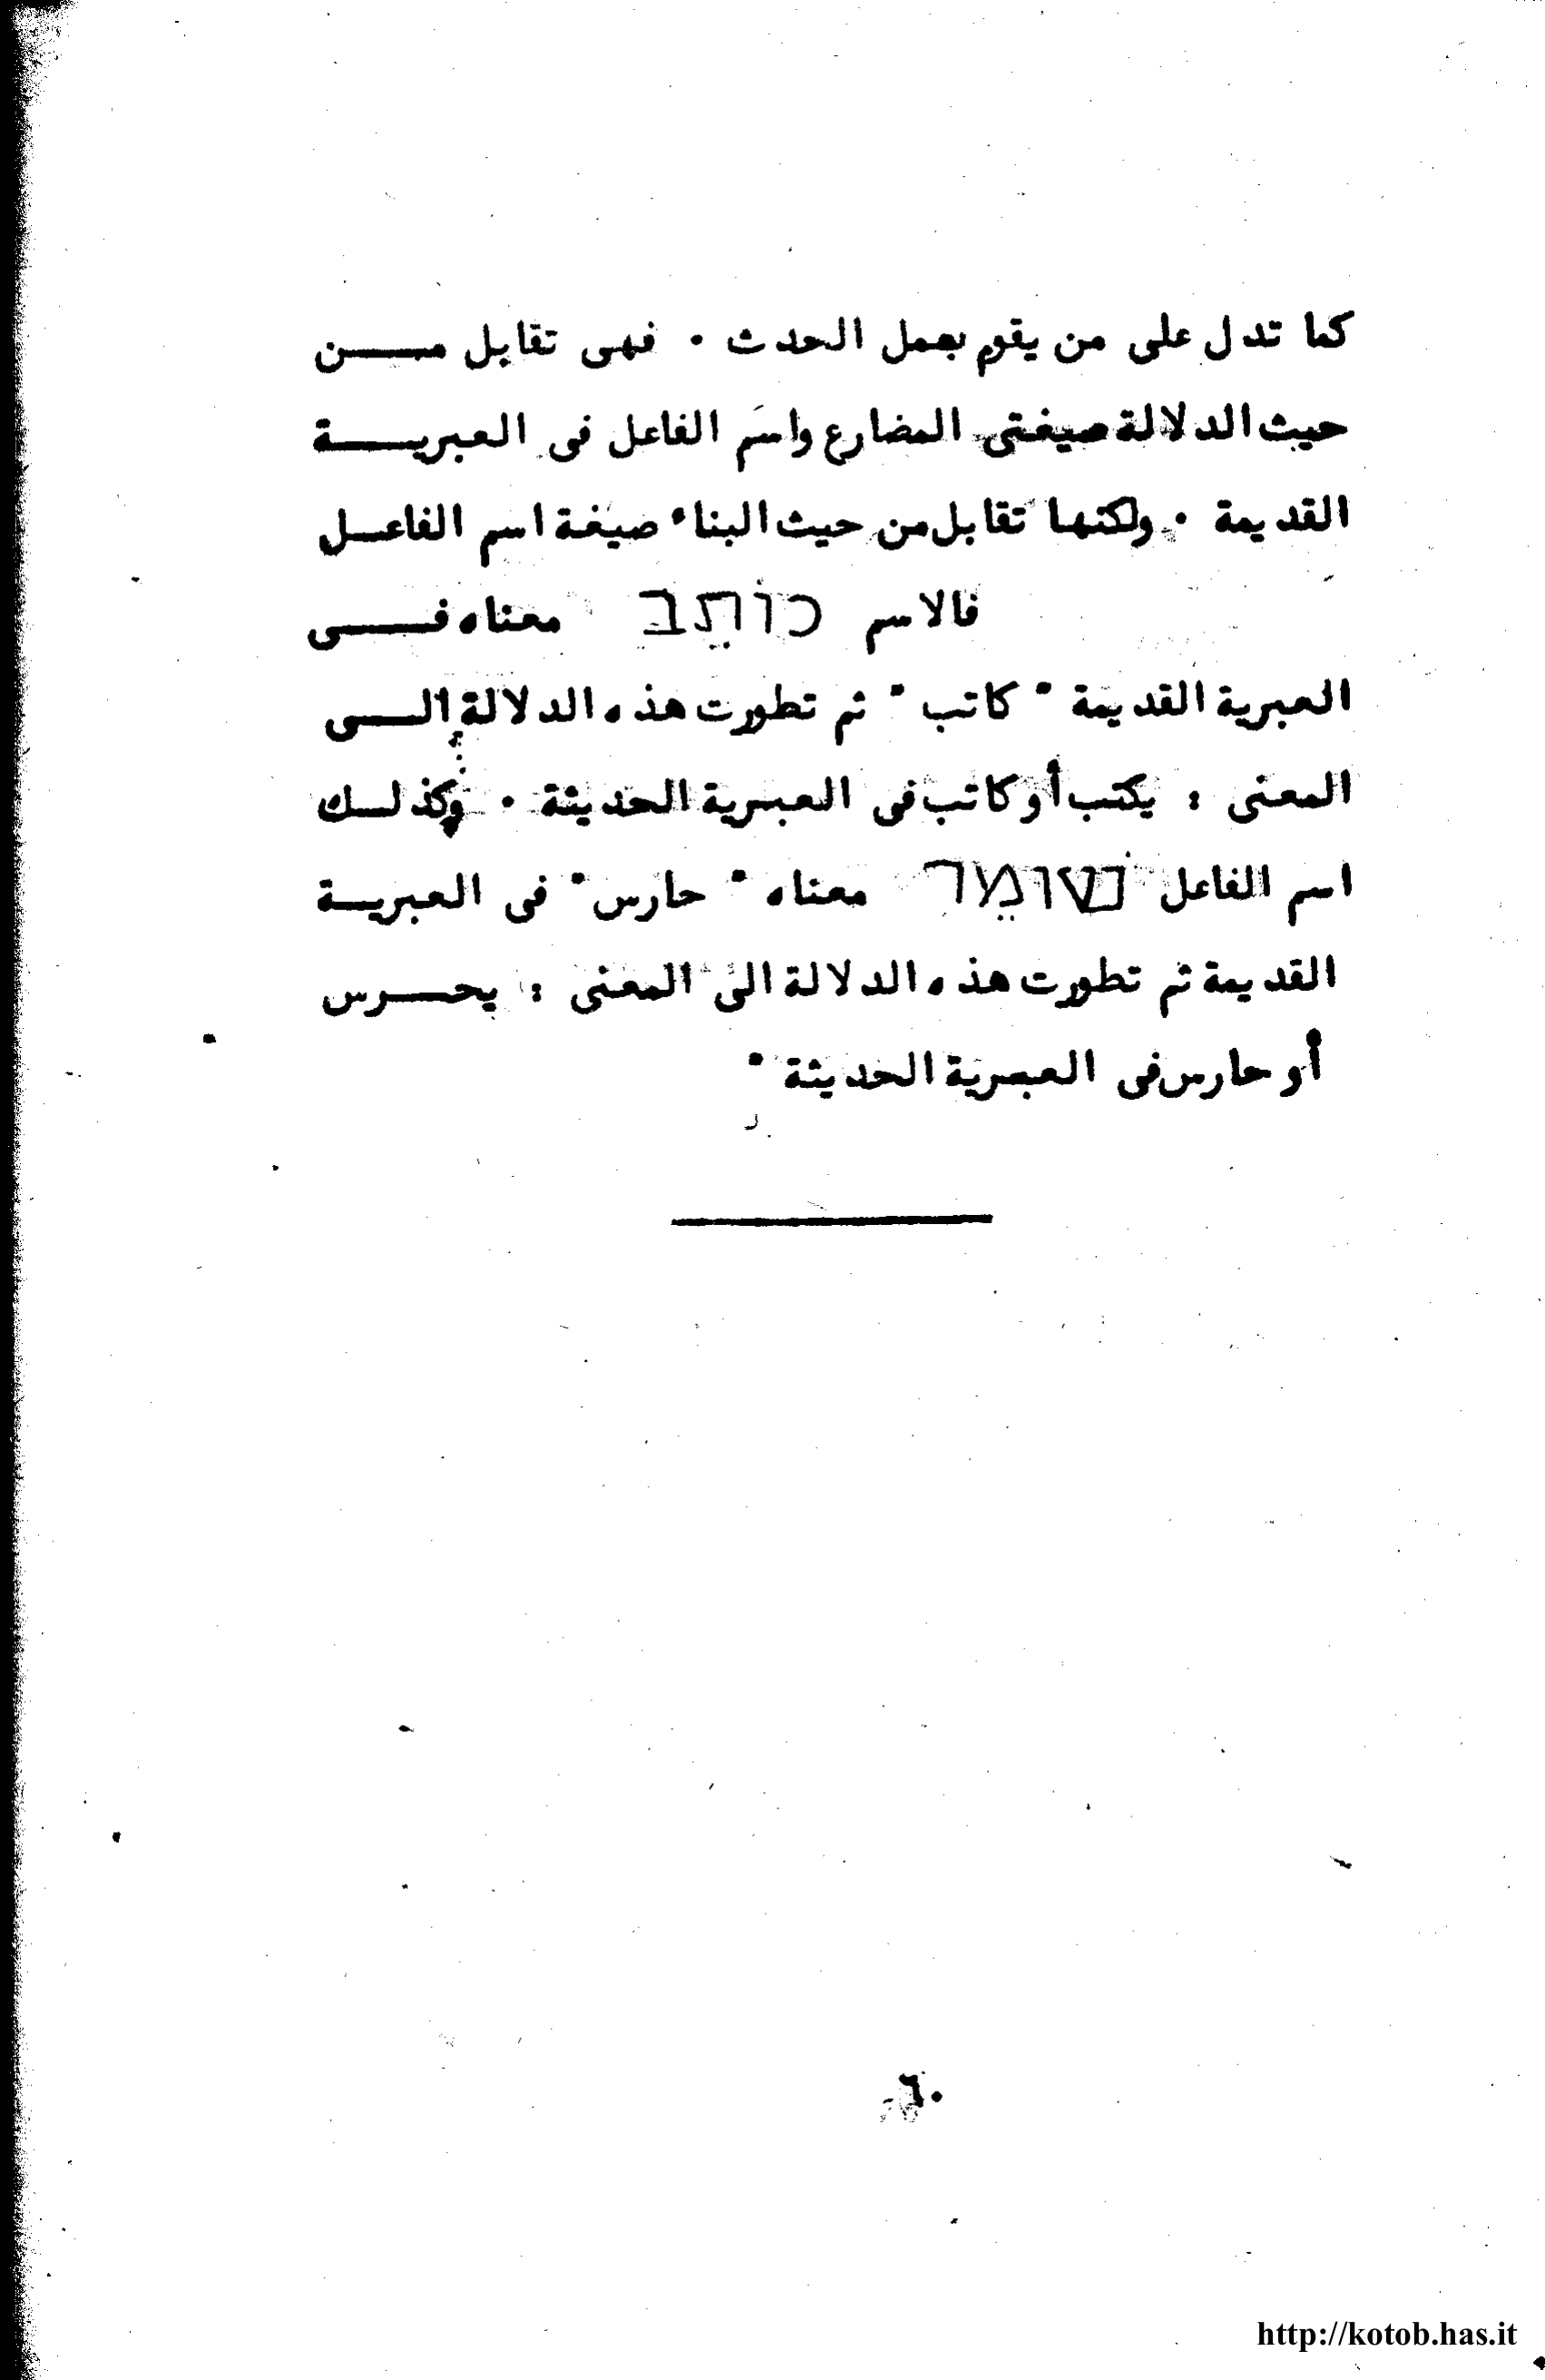 كما تدل على من يقوم بعمل الحدث . فهى تقابل مــــن
حيث الدلالة صيغتى المضارع واسم الفاعل فى العبريـــــة
القديمة . ولكنها تقابل من حيث البناء صيغة اسم الفاعــل
فالاسم כותב معناه فــــى
العبرية القديمة " كاتب " ثم تطورت هذه الدلالة إلــــى
المعنى : يكتب أو كاتب فى العبرية الحديثة . وكذلــك
اسم الفاعل שומר معناه " حارس " فى العبريــة
القديمة ثم تطورت هذه الدلالة الى المعنى : يحـــرس
أو حارس فى العبرية الحديثة "
٦٠
http://kotob.has.it